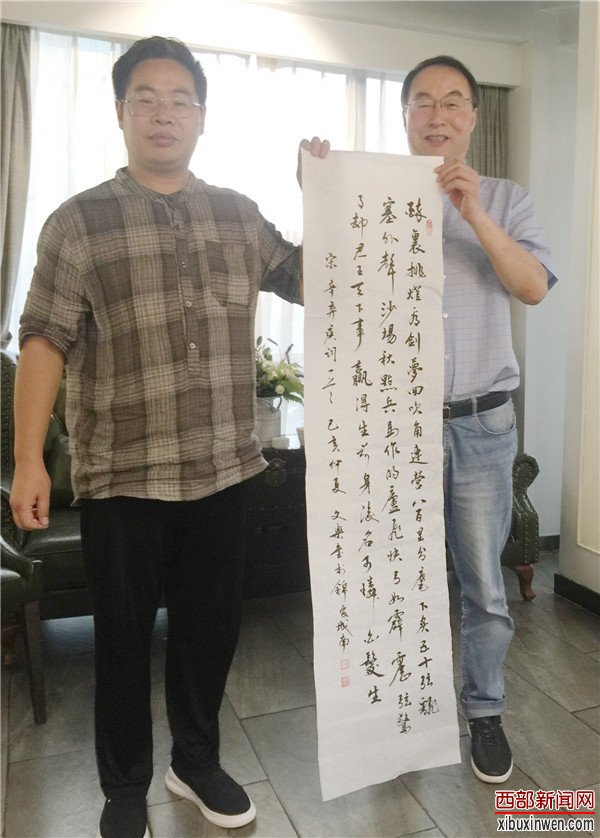 醉裏挑燈看劍夢回吹角連營八百里分麾下炙五十弦翻
塞外聲沙場秋點兵馬作的盧飛快弓如霹靂弦驚
了却君王天下事贏得生前身後名可憐白髮生
宋辛弃疾詞一首己亥仲夏文樂書於錦官城南
西部新闻网
xibuxinwen.com